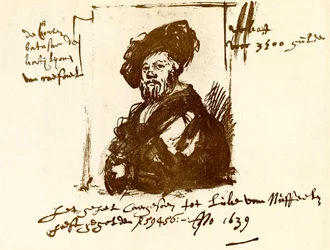 de Conte
batasar de
van raefael
voor 3500 gulden
het geheel caergesoen tot Luke van Nuffeelen
heeft gegolden f 59456:- Ano 1639